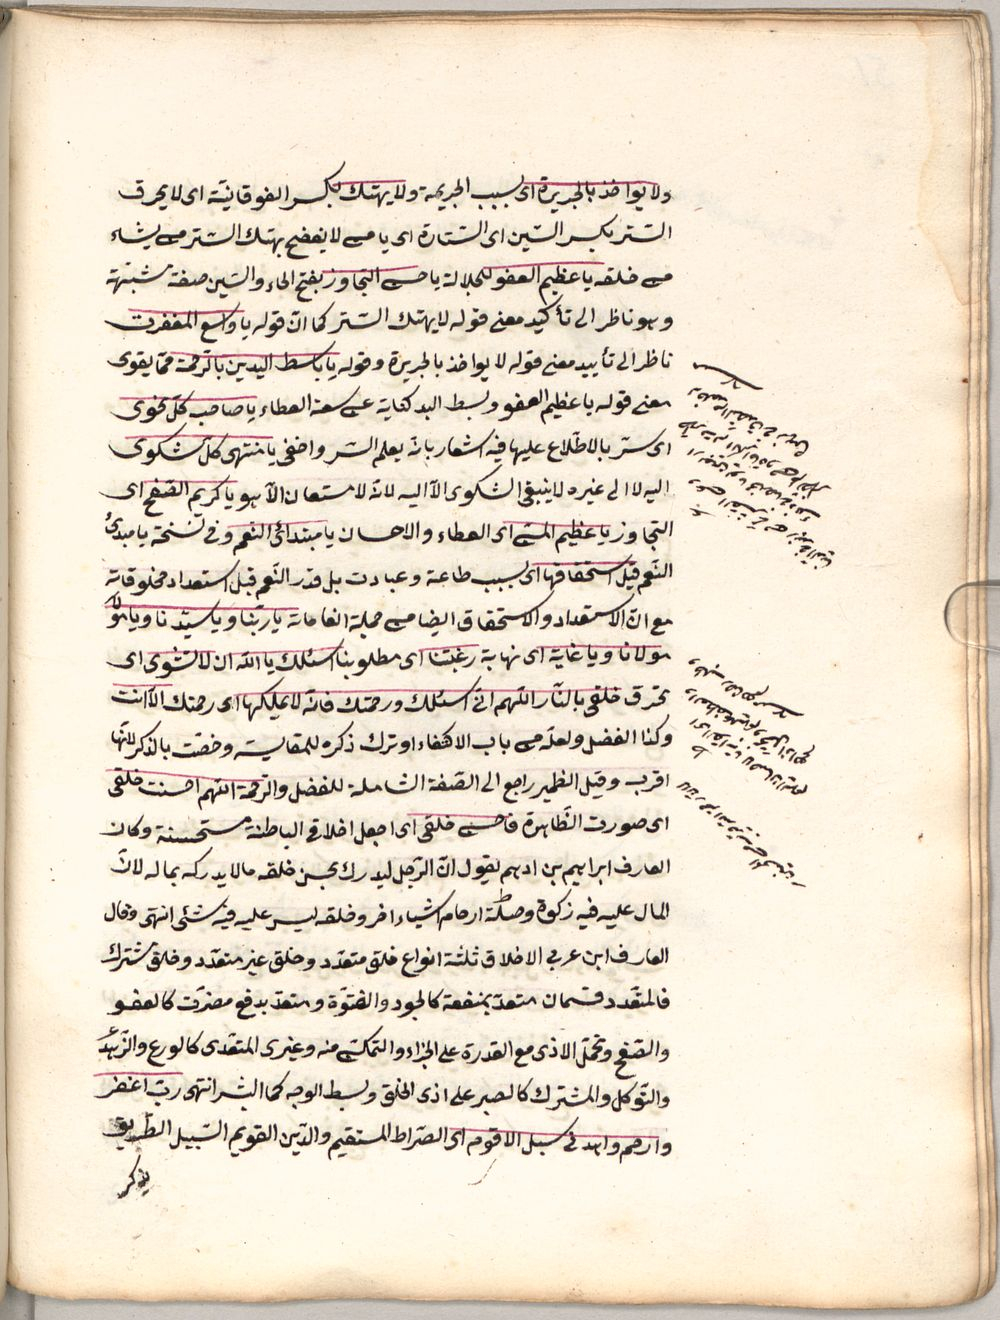 ولا يواخذ بالجريرة اى بسبب الجريمة ولا يهتك بكسر الفوقانية اى لا يخرق
الستر بكسر السّين اى الستارة اى يا من لا يفضح بهتك الستر من يشاء
من خلقه يا عظيم العفو للجلالة يا حسن التجاوز بفتح الحاء والسّين صفة مشبّهة
وهو ناظر الى تأكيد معنى قوله لا يهتك الستر كما انّ قوله يا واسع المغفرت
ناظر الى تأييد معنى قوله لا يواخذ بالجريرة وقوله يا باسط اليدين بالرّحمة ممّا يقوى
معنى قوله يا عظيم العفو وبسط اليد كناية عن سعة العطاء يا صاحب كلّ نجوى
اى سرّ بالاطّلاع عليها فيه اشعار بانّه يعلم السّر واخفى يا منتهى كلّ شكوى
اليه لا الى غيره ولا ينبغى الشكوى الّا اليه لانّه لا مستعان الّا هو يا كريم الصّفح اى
التجاوز يا عظيم المنّ اى العطاء والاحسان يا مبتدائ النعم وفى نسخة يا مبدئ
النّعم قبل استحقاقها اى بسبب طاعة وعبادت بل قدر النّعم قبل استعداد مخلوقاته
مع انّ الاستعداد والاستحقاق ايضا من جملة انعاماته يا ربّنا ويا سيّدنا ويا مولا
مولانا ويا غاية اى نهاية رغبتنا اى مطلوبنا اسئلك يا اللّه ان لا تشوى اى
تحرق خلقى بالنّار اللّهم انّى اسئلك ورحمتك فانّه لا يملكها اى رحمتك الّا انت
وكذا الفضل ولعلّه من باب الاكتفاء او ترك ذكره للمقايسة وخصّت بالذكر لانّها
اقرب وقيل الضّمير راجع الى الصّفة الشاملة للفضل والرّحمة اللّهم احسنت خلقى
اى صورت الظّاهرة فاحسن خلقى اى اجعل اخلاقى الباطنة مستحسنة وكان
العارف ابراهيم بن ادهم يقول انّ الرّجل ليدرك بحسن خلقه ما لا يدركه بماله لانّ
المال عليه فيه زكوة وصلّة ارحام اشياء اخر وخلقه ليس عليه فيه شئى انتهى وقال
العارف ابن عربى الاخلاق ثلثة انواع خلق متعدّد وخلق غير متعدّد وخلق مشترك
فالمتعدد قسمان متعدّ بمنفعة كالجود والفتوّة ومتعدّ بدفع مضرّت كالعفو
والصّفح وتحمّل الاذى مع القدرة على الجزاء والتمكّن منه وغيرى المتعدى كالورع والزّهد
والتّوكل والمشترك كالصبر على اذى الخلق وبسط الوجه كما البشر انتهى ربّ اغفر
وارحم واهد فى سبل الاقوم اى الصّراط المستقيم والدّين القويم السّبيل الطّريق
يذكر